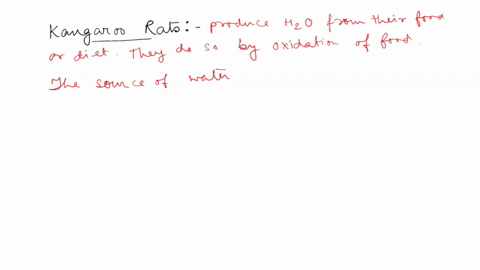 Kangaroo Rats:- produce H2O from their food
or diet. They do so by oxidation of food.
The source of water